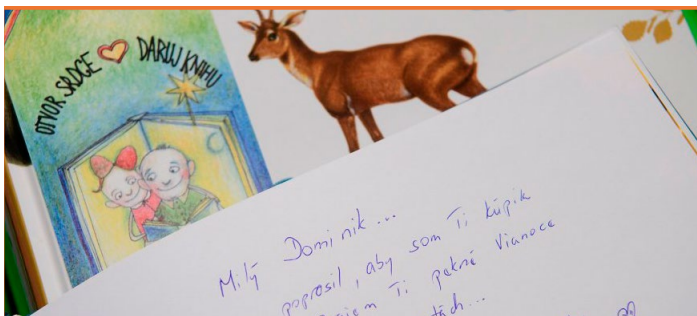 OTVOR SRDCE DARUJ KNIHU
Milý Dominik...
poprosil, aby som Ti kúpik
Ti pekné Vianoce